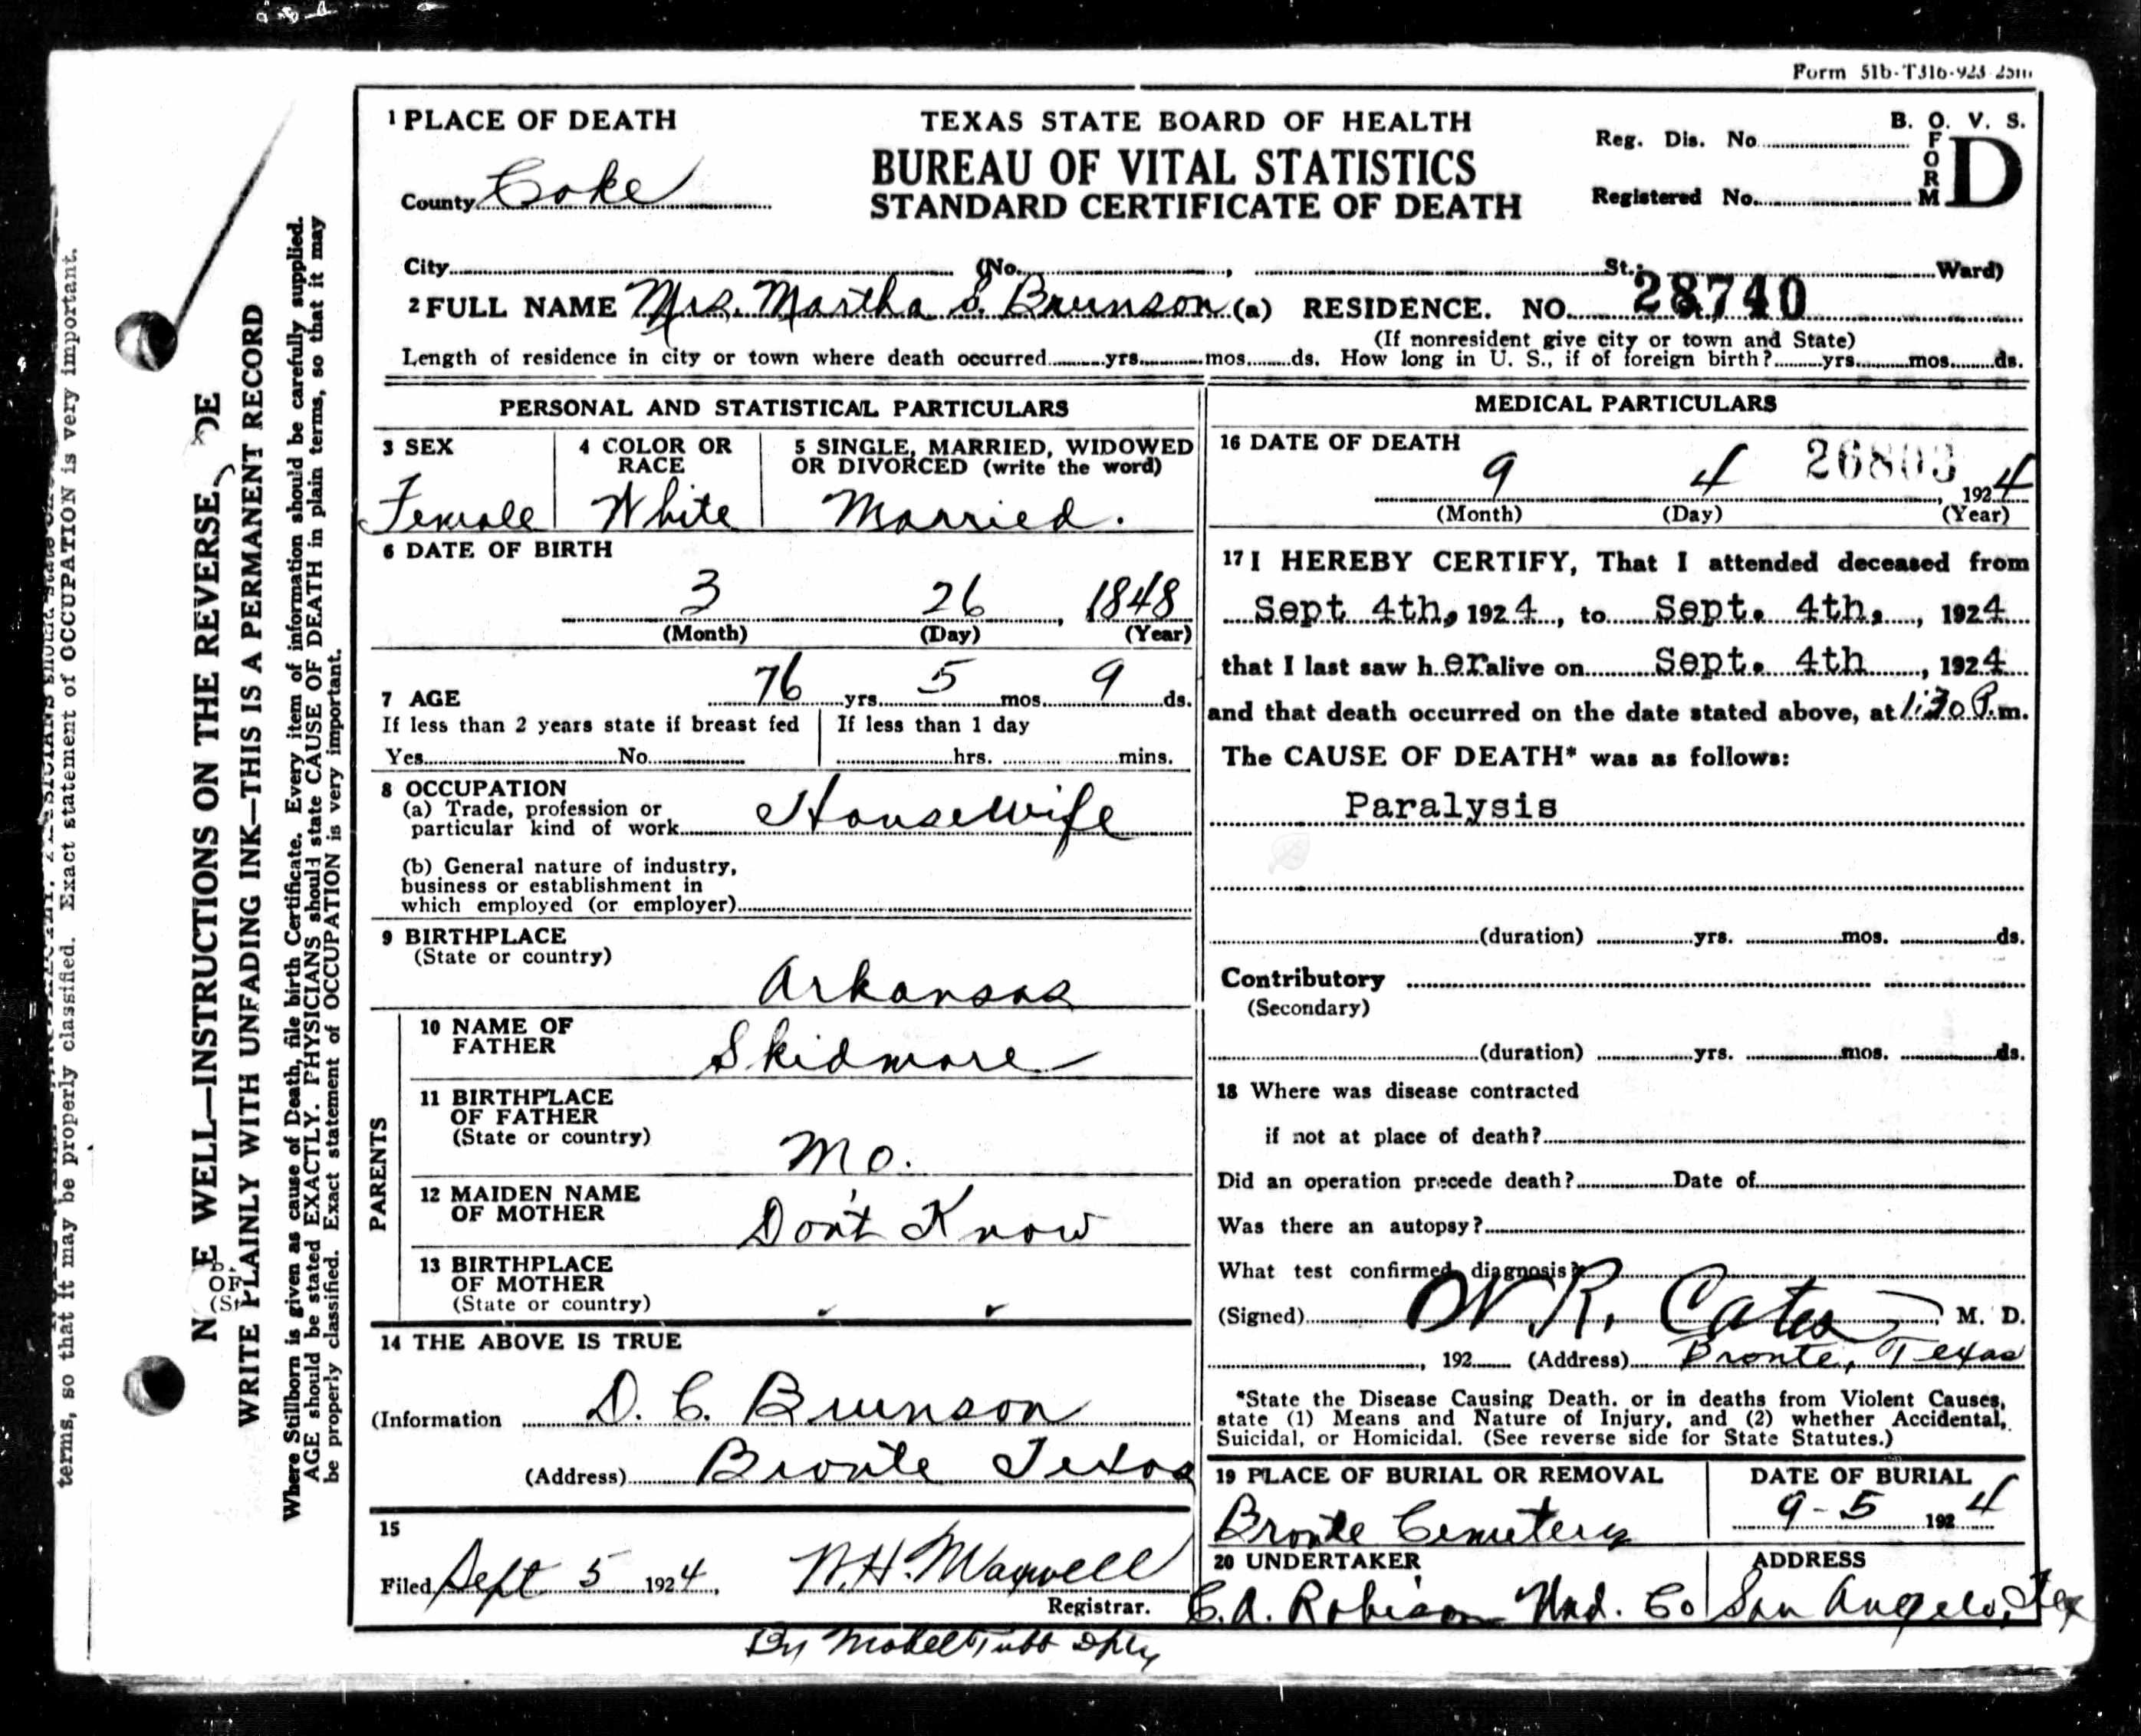 Form 51b-T316-923-25m
1 PLACE OF DEATH
TEXAS STATE BOARD OF HEALTH
BUREAU OF VITAL STATISTICS
STANDARD CERTIFICATE OF DEATH
B. O. V. S.
FORM D
Reg. Dis. No.
Registered No.
County Coke
City (No. , St.; Ward)
2 FULL NAME Mrs. Martha S. Brunson (a) RESIDENCE. NO. 28740
(If nonresident give city or town and State)
Length of residence in city or town where death occurred yrs. mos. ds. How long in U. S., if of foreign birth? yrs. mos. ds.
PERSONAL AND STATISTICAL PARTICULARS
3 SEX
Female
4 COLOR OR RACE
White
5 SINGLE, MARRIED, WIDOWED
OR DIVORCED (write the word)
Married.
6 DATE OF BIRTH
3 26, 1848
(Month) (Day) (Year)
7 AGE 76 yrs. 5 mos. 9 ds.
If less than 2 years state if breast fed
Yes No
If less than 1 day
hrs. mins.
8 OCCUPATION
(a) Trade, profession or
particular kind of work Housewife
(b) General nature of industry,
business or establishment in
which employed (or employer)
9 BIRTHPLACE
(State or country)
Arkansas
PARENTS
10 NAME OF
FATHER
Skidmore
11 BIRTHPLACE
OF FATHER
(State or country)
Mo.
12 MAIDEN NAME
OF MOTHER
Don't Know
13 BIRTHPLACE
OF MOTHER
(State or country)
14 THE ABOVE IS TRUE
(Information D. C. Brunson
(Address) Bronte Texas
15
Filed Sept 5 1924, W.H. Maxwell
Registrar.
By Mabel Tubb Dpty
MEDICAL PARTICULARS
16 DATE OF DEATH
26803
9 4, 1924
(Month) (Day) (Year)
17 I HEREBY CERTIFY, That I attended deceased from
Sept 4th, 1924, to Sept. 4th, 1924
that I last saw her alive on Sept. 4th, 1924
and that death occurred on the date stated above, at 1:30 P.m.
The CAUSE OF DEATH* was as follows:
Paralysis
(duration) yrs. mos. ds.
Contributory
(Secondary)
(duration) yrs. mos. ds.
18 Where was disease contracted
if not at place of death?
Did an operation precede death? Date of
Was there an autopsy?
What test confirmed diagnosis?
(Signed) W R. Cates, M. D.
, 192 (Address) Bronte, Texas
*State the Disease Causing Death. or in deaths from Violent Causes,
state (1) Means and Nature of Injury, and (2) whether Accidental,
Suicidal, or Homicidal. (See reverse side for State Statutes.)
19 PLACE OF BURIAL OR REMOVAL
Bronte Cemetery
DATE OF BURIAL
9-5 1924
20 UNDERTAKER
C. A. Robison Und. Co
ADDRESS
San Angelo, Tex
WELL—INSTRUCTIONS ON THE REVERSE
WRITE PLAINLY WITH UNFADING INK—THIS IS A PERMANENT RECORD
Where Stillborn is given as cause of Death, file birth Certificate. Every item of information should be carefully supplied.
AGE should be stated EXACTLY. PHYSICIANS should state CAUSE OF DEATH in plain terms, so that it may
be properly classified. Exact statement of OCCUPATION is very important.
terms, so that it may be properly classified. Exact statement of OCCUPATION is very important.